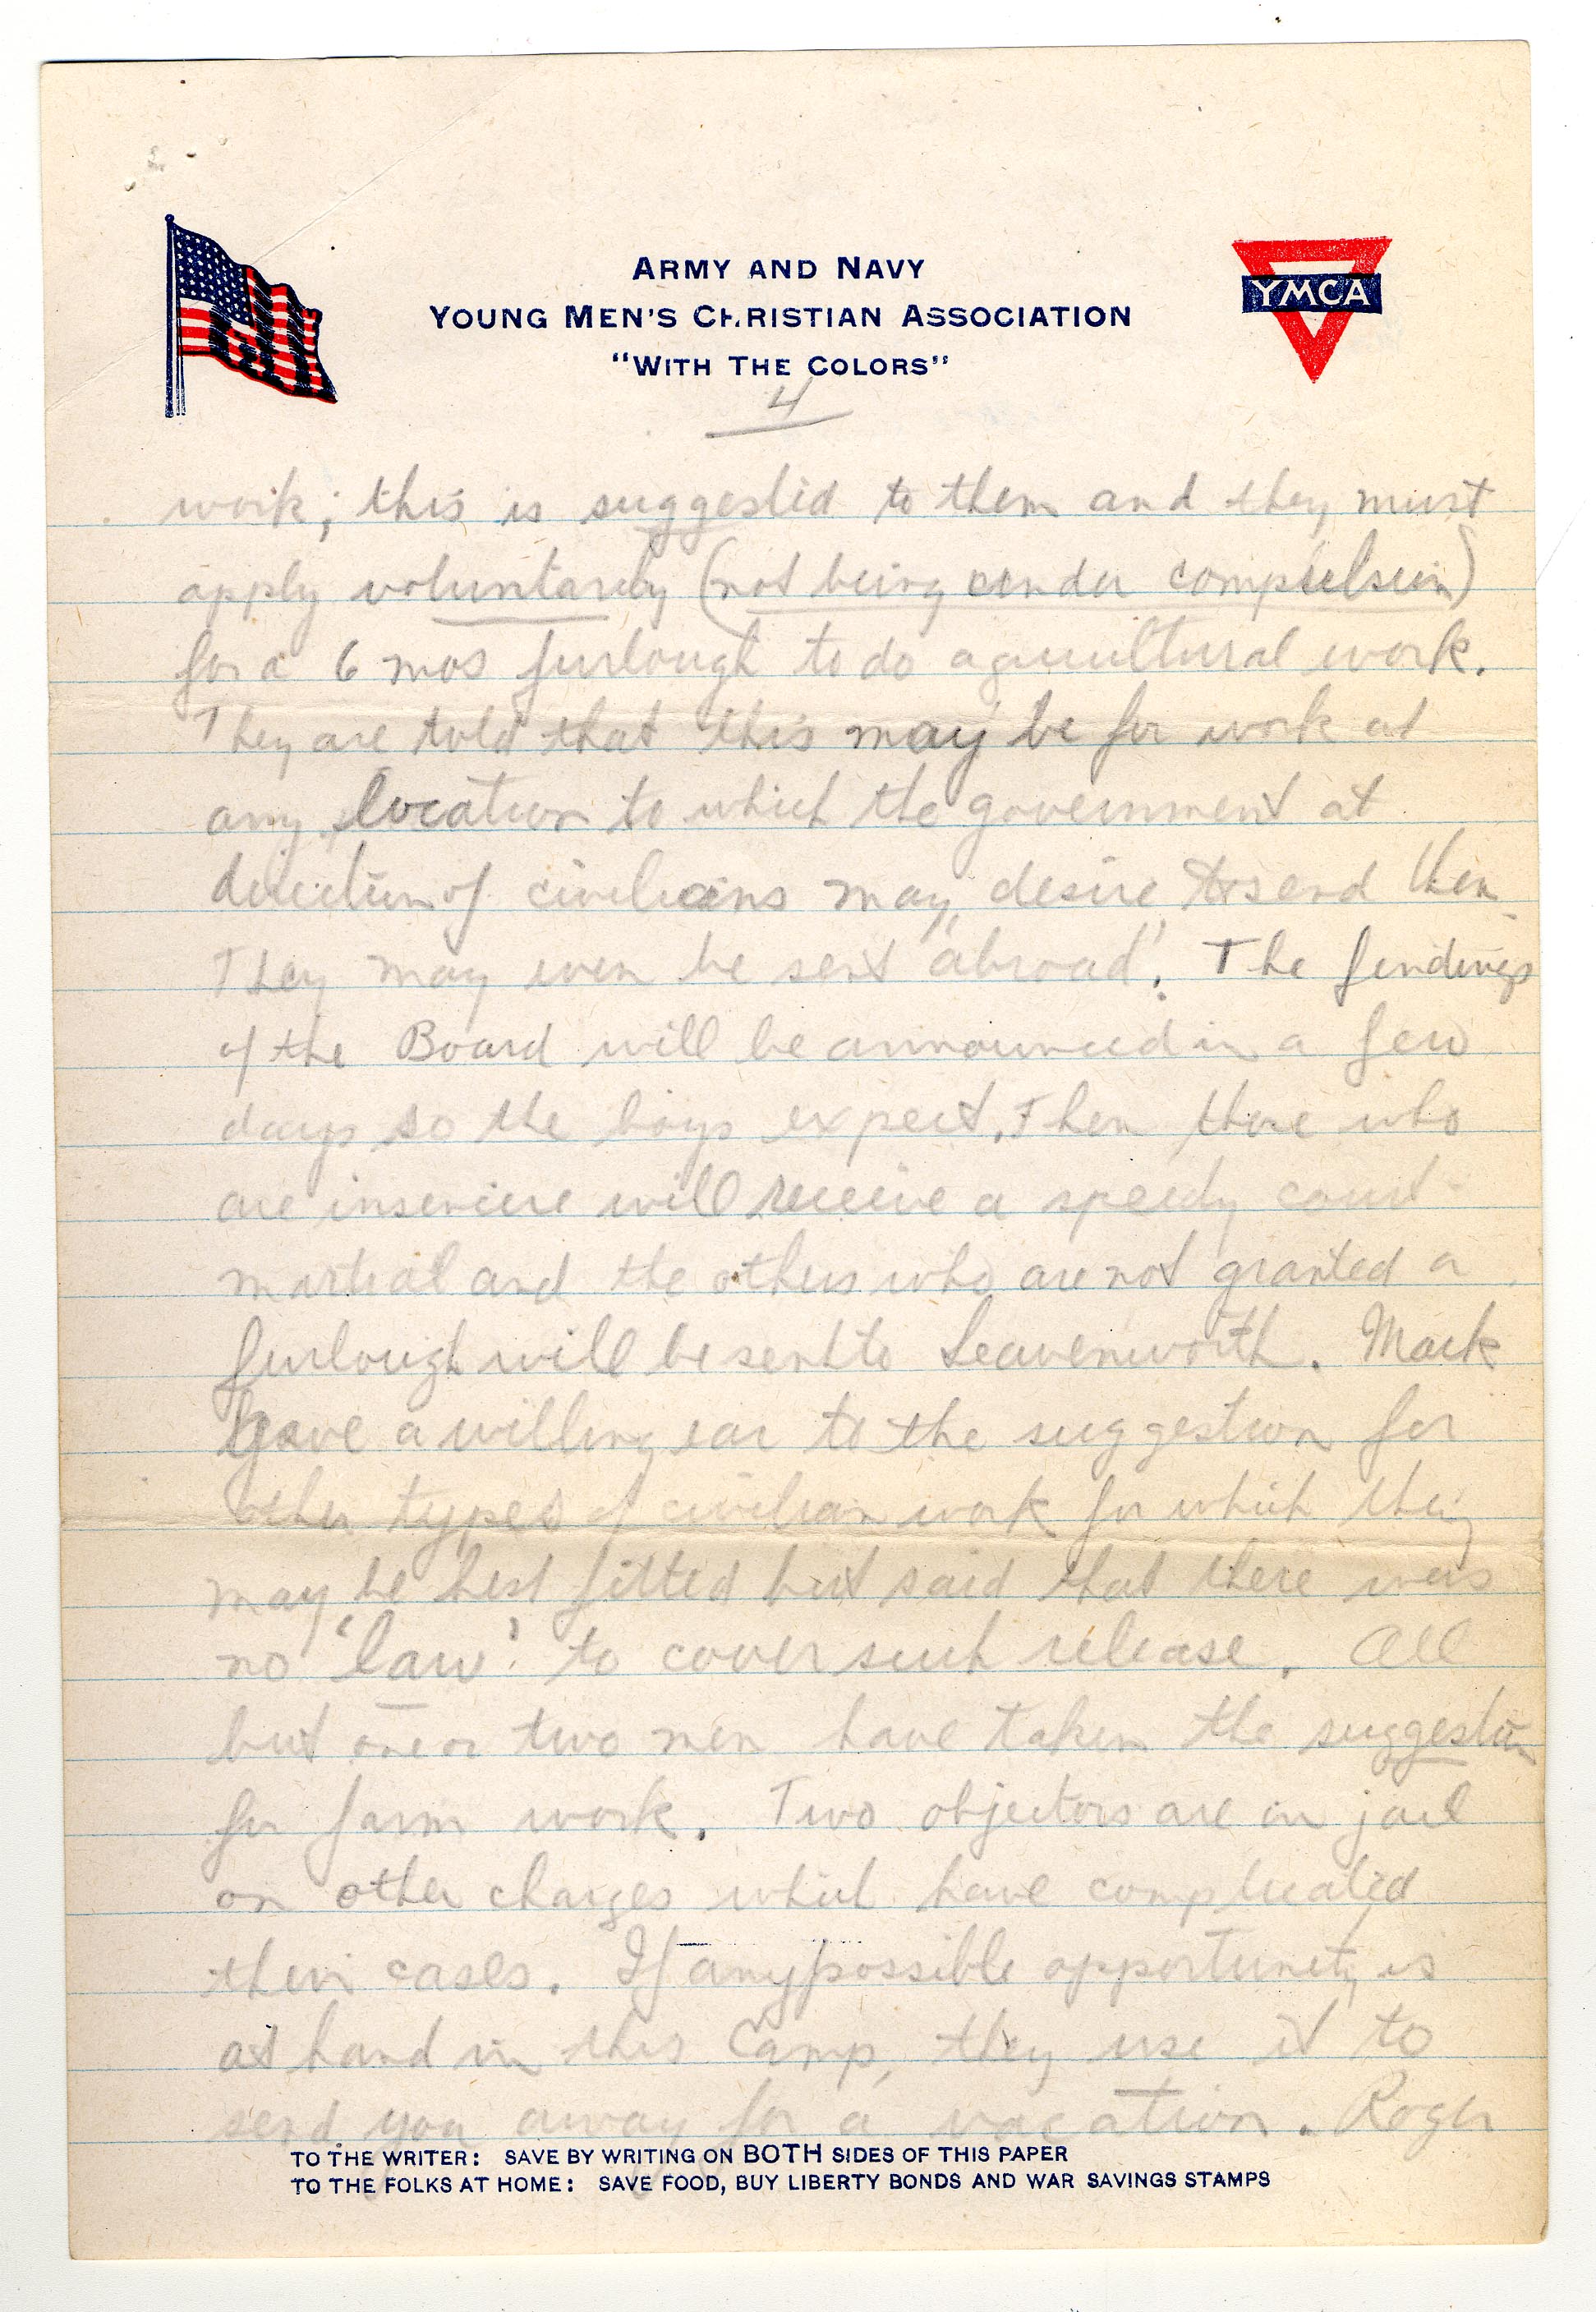 ARMY AND NAVY
YOUNG MEN'S CHRISTIAN ASSOCIATION
"WITH THE COLORS"
YMCA
4
work; this is suggested to them and they must
apply voluntarily (not being under compulsion)
for a 6 mos furlough to do agricultural work.
They are told that this may be for work at
any location to which the government at
direction of civilians may desire to send them
They may even be sent "abroad". The findings
of the Board will be announced in a few
days so the boys expect. Then those who
are insincere will receive a speedy court
martial and the others who are not granted a
furlough will be sent to Leavenworth. Mack
gave a willing ear to the suggestion for
other types of civilian work for which they
may be best fitted but said that there was
no 'law' to cover such release. All
but one or two men have taken the suggestion
for farm work. Two objectors are in jail
on other charges which have complicated
their cases. If any possible opportunity is
at hand in this Camp, they use it to
send you away for a vacation. Roger
TO THE WRITER: SAVE BY WRITING ON BOTH SIDES OF THIS PAPER
TO THE FOLKS AT HOME: SAVE FOOD, BUY LIBERTY BONDS AND WAR SAVINGS STAMPS